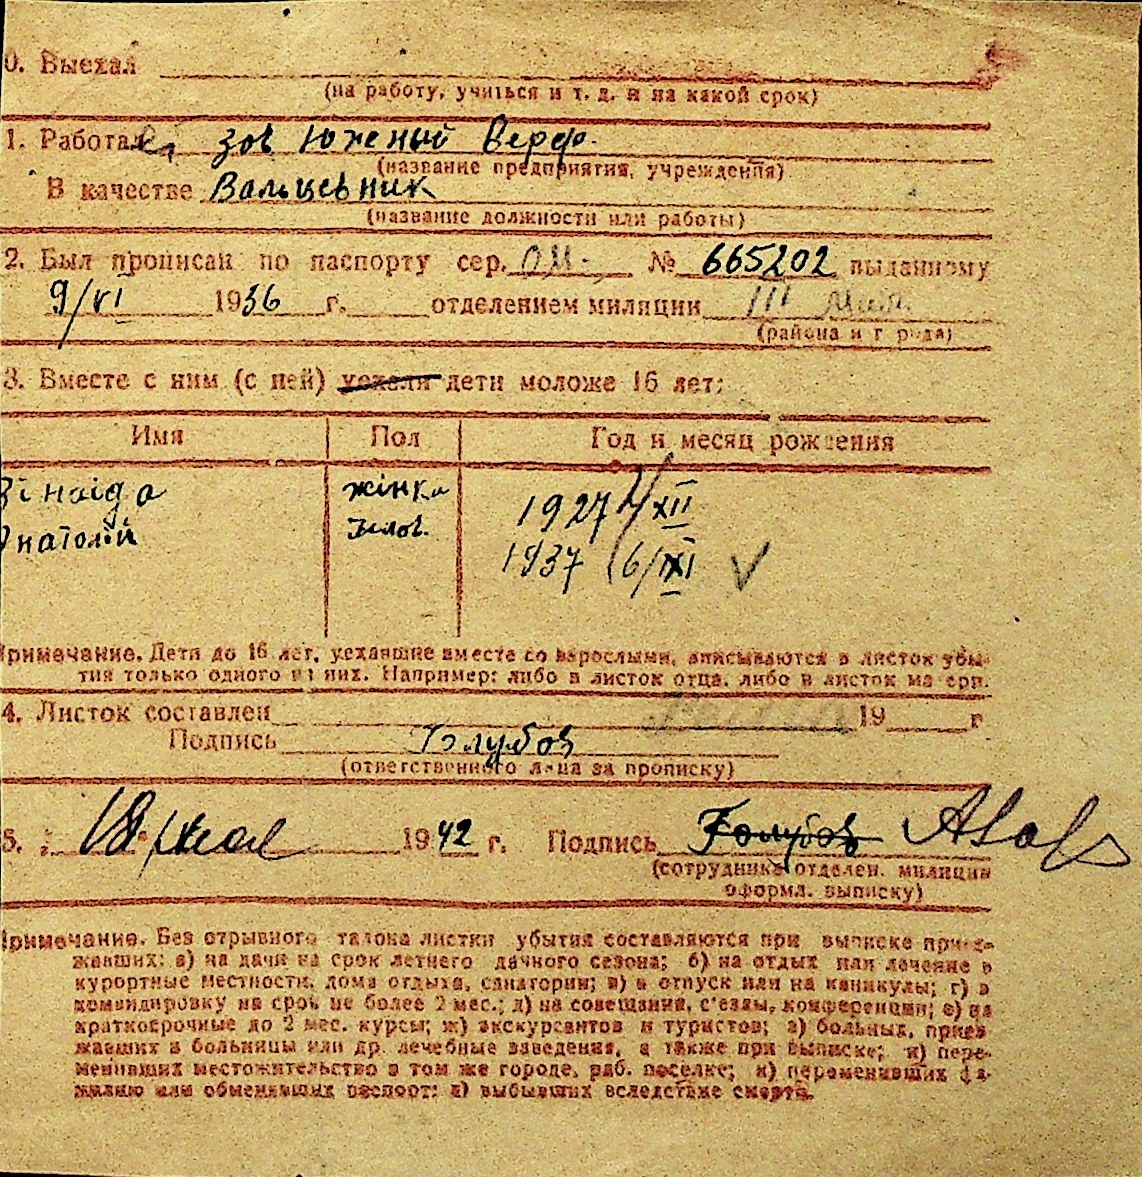 0. Выехал
(на работу, учиться и т. д. и на какой срок)
1. Работал зов Юженый Верф.
(название предприятия, учреждения)
В качестве Вальцевник
(название должности или работы)
2. Был прописан по паспорту сер. ОМ. № 665202 выданному
9/VI 1936 г. отделением милиции III Мил.
(района и г рода)
3. Вместе с ним (с ней) уехали дети моложе 16 лет:
Имя Пол Год и месяц рождения
Зінаіда жінка 1927 2/XII
Анатолій чолов. 1937 16/XI
Примечание. Дети до 16 лет, уехавшие вместе со взрослыми, вписываются в листок убы-
тия только одного из них. Например: либо в листок отца, либо в листок матери.
4. Листок составлен 19 г
Подпись Голубов
(ответственного лица за прописку)
5. 1942 г. Подпись Голубов
(сотрудника отделен. милиции
оформл. выписку)
Примечание. Без отрывного талона листки убытия составляются при выписке приез-
жавших: а) на дачи на срок летнего дачного сезона; б) на отдых или лечение в
курортные местности, дома отдыха, санатории; в) в отпуск или на каникулы; г) в
командировку на срок не более 2 мес.; д) на совещания, с'езды, конференции; е) на
краткосрочные до 2 мес. курсы; ж) экскурсантов и туристов; з) больных, приез
жавших в больницы или др. лечебные заведения, а также при выписке; и) пере-
менивших местожительство в том же городе, раб. поселке; к) переменивших фа-
милию или обменявших паспорт; л) выбывших вследствие смерти.